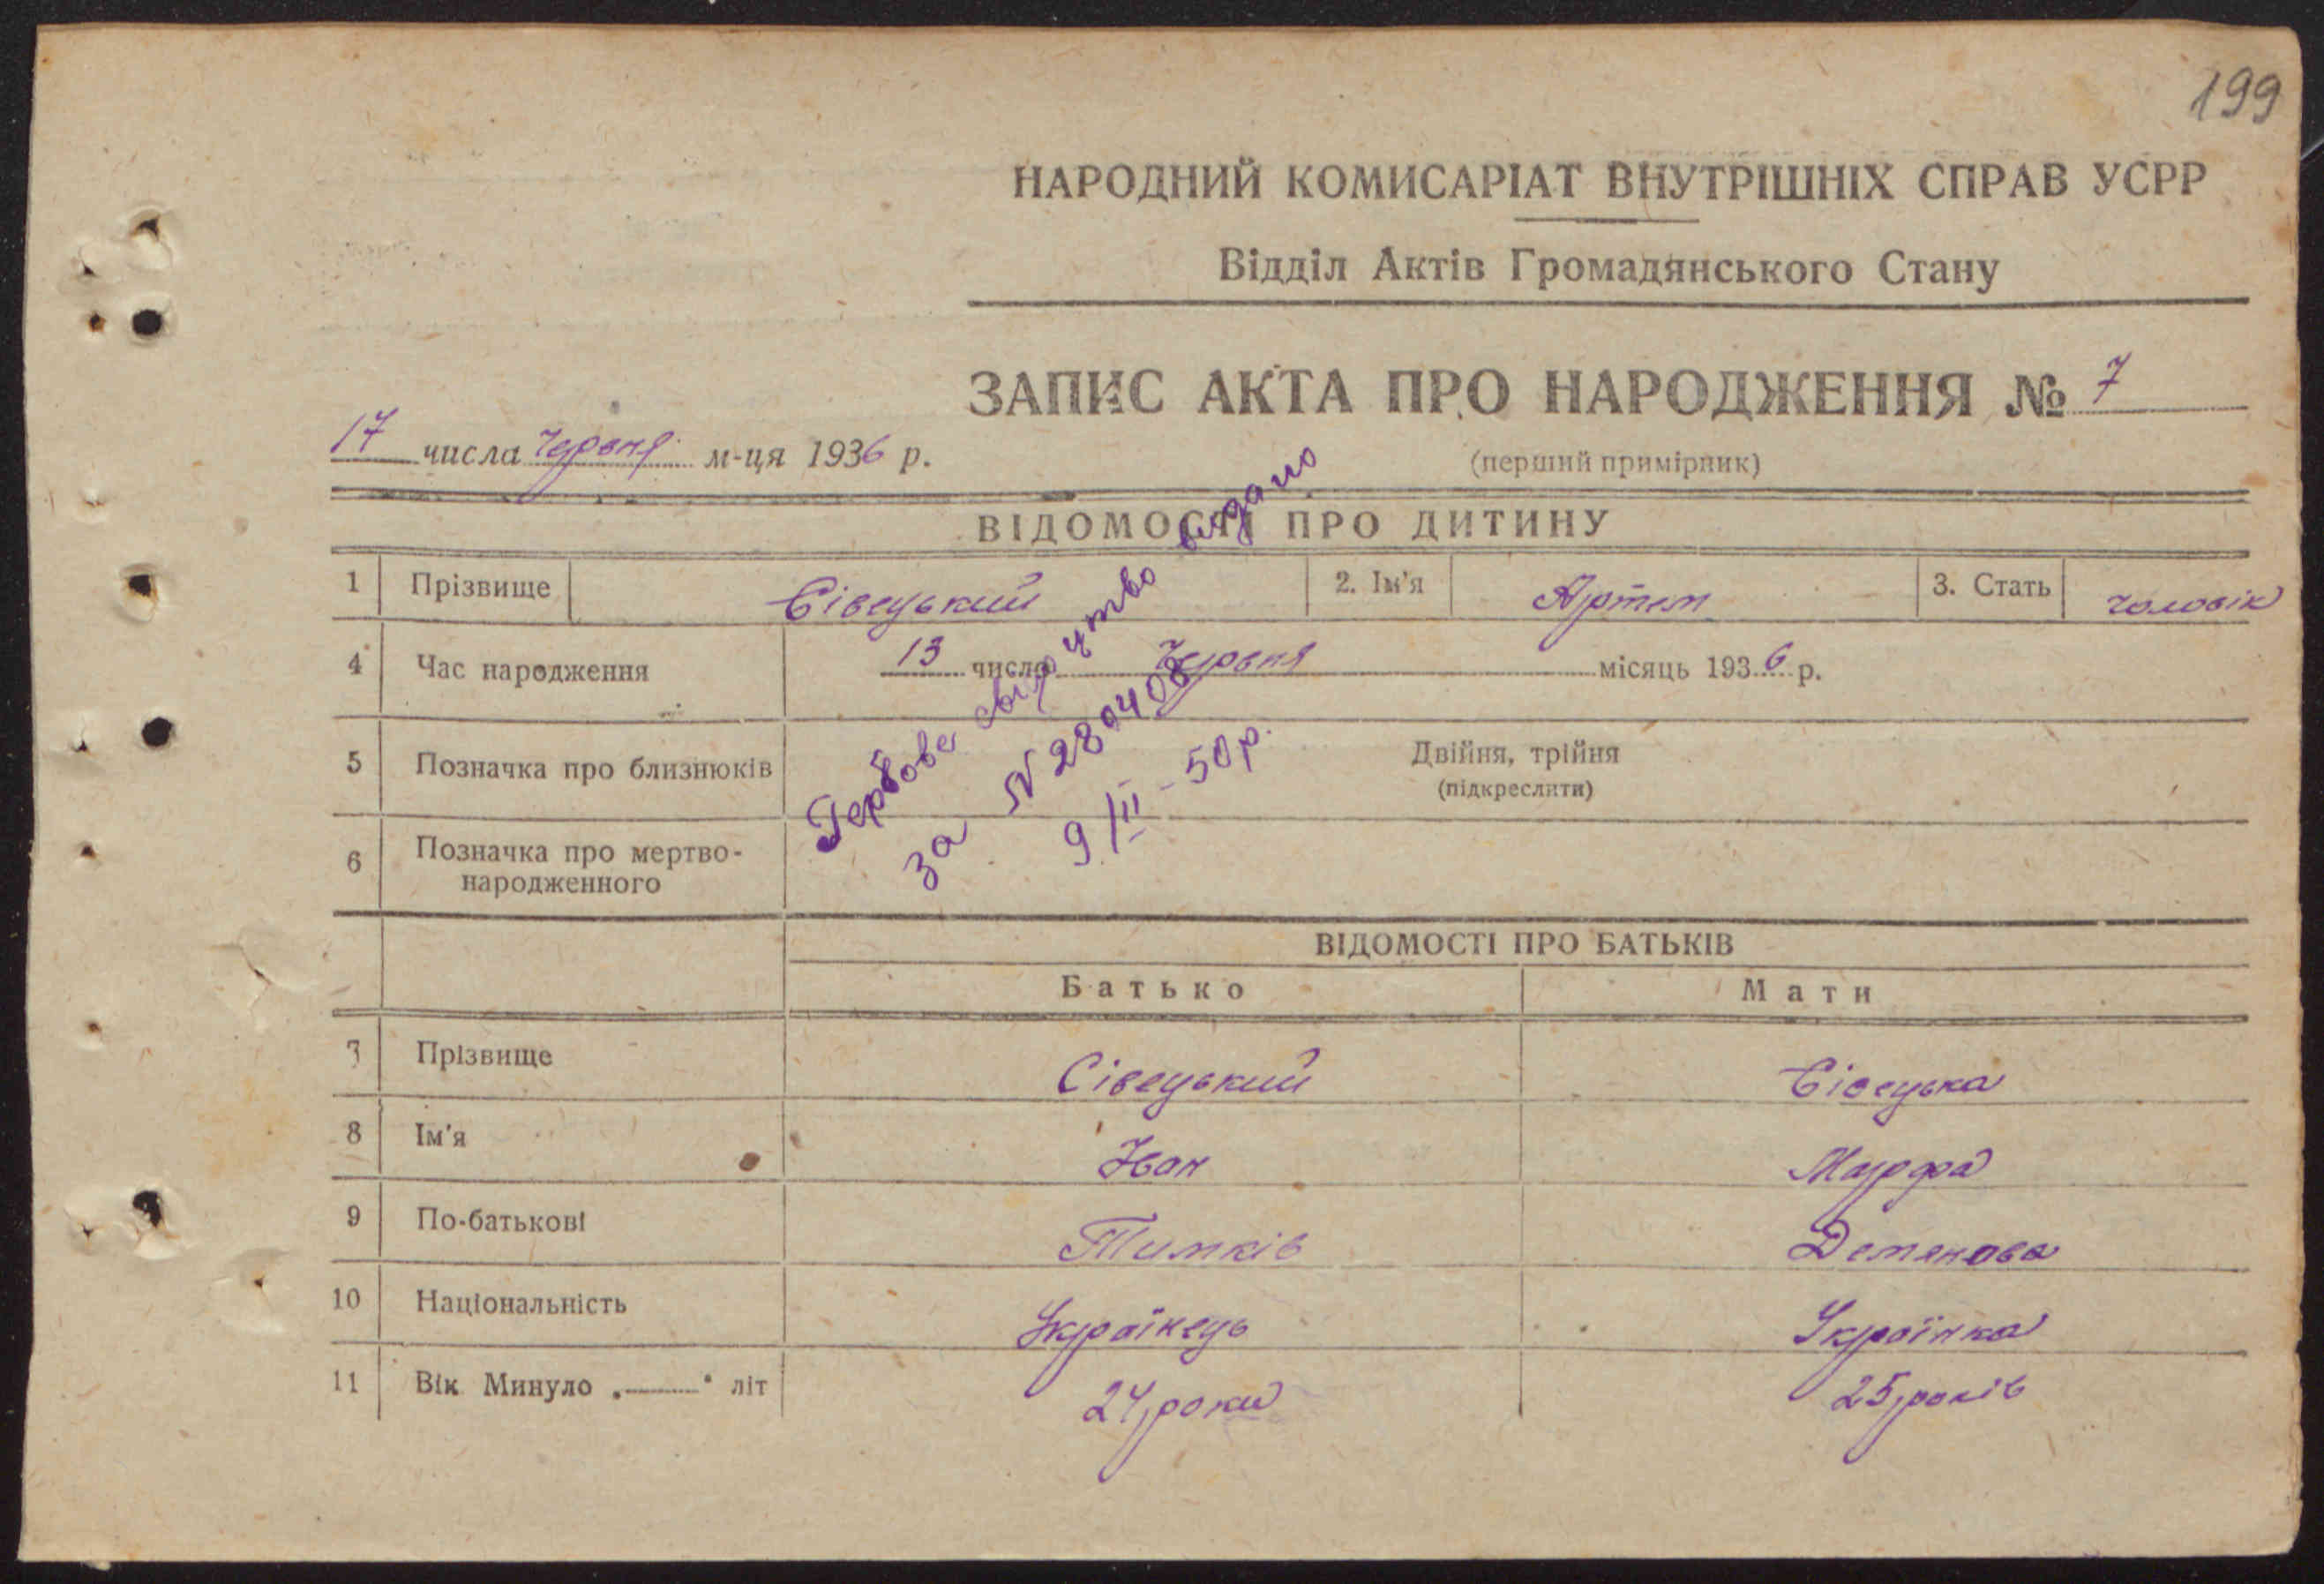 199
НАРОДНИЙ КОМИСАРІАТ ВНУТРІШНІХ СПРАВ УСРР
Відділ Актів Громадянського Стану
ЗАПИС АКТА ПРО НАРОДЖЕННЯ № 7
17 числа червня м-ця 1936 р.
(перший примірник)
ВІДОМОСТІ ПРО ДИТИНУ
1 Прізвище Сівецький 2. Ім'я Артем 3. Стать чоловік
4 Час народження 13 число червня місяць 1936 р.
5 Позначка про близнюків Двійня, трійня
(підкреслити)
6 Позначка про мертво-
народженного
Гербове свідоцтво видано
за № 280408
9/III - 50 р.
ВІДОМОСТІ ПРО БАТЬКІВ
Батько Мати
7 Прізвище Сівецький Сівецька
8 Ім'я Іван Марфа
9 По-батькові Тимків Демянова
10 Національність Українець Українка
11 Вік Минуло „——" літ 24 роки 25 років